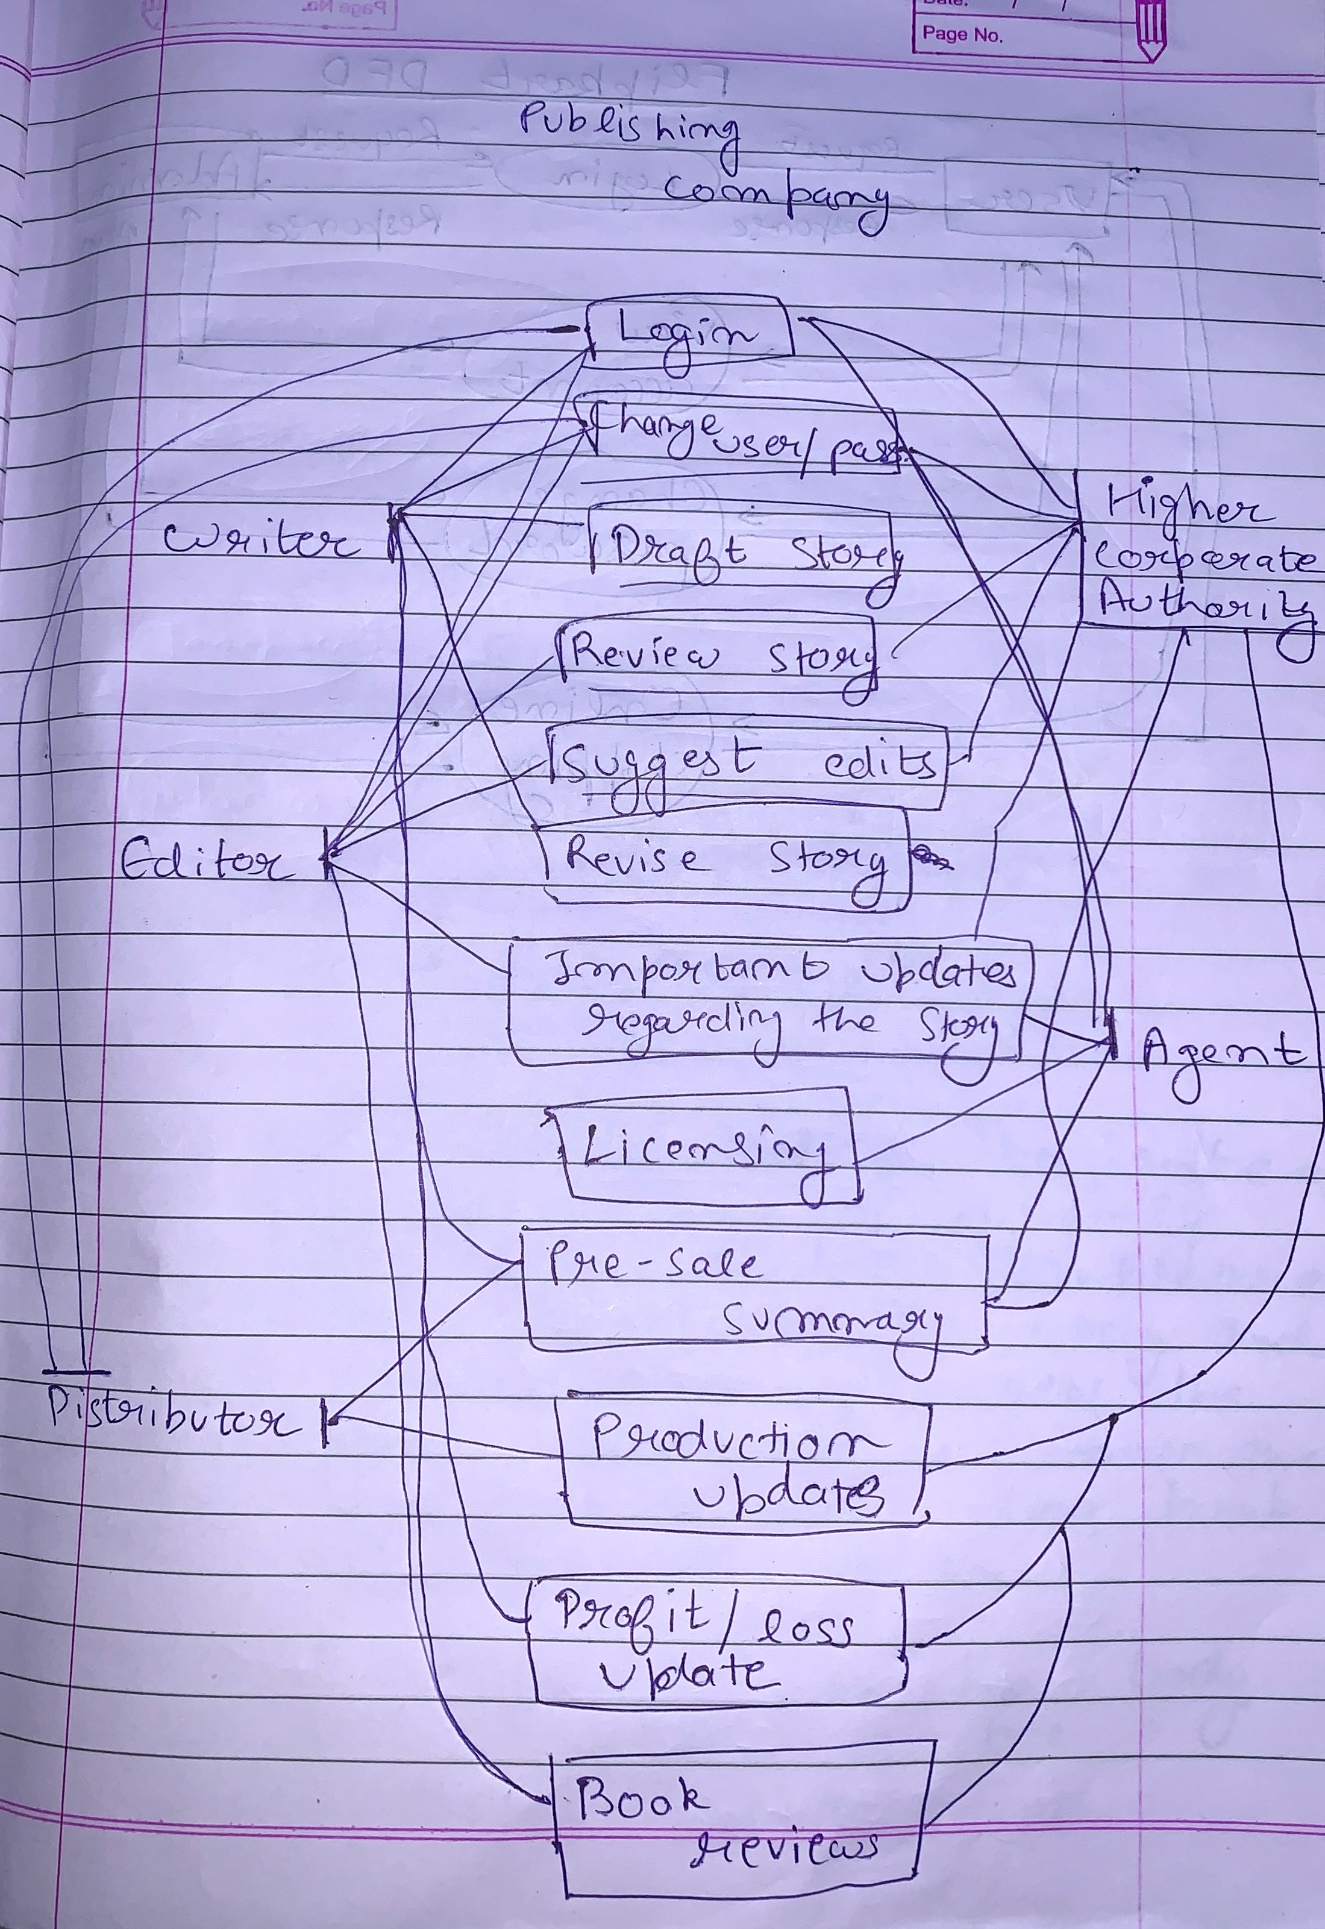 Date: / /
Page No.
Publishing
Company
Login
Change user/pass
Writer
Draft Story
Higher
Corporate
Authority
Review Story
Suggest edits
Editor
Revise Story
Important updates
regarding the Story
Agent
Licensing
Pre-sale
summary
Distributor
Production
updates
Profit/loss
update
Book
reviews